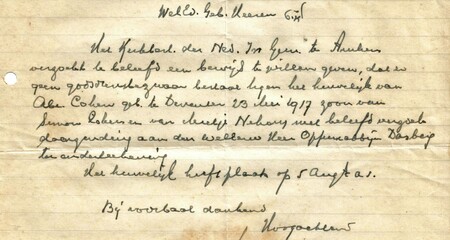 WelEd. Geb. Heeren
Het Kerkbest. der Ned. Isr Gem. te Arnhem
verzocht te beleefd een bewijs te willen geven, dat er
geen godsdienstbezwaar bestaat tegen het huwelijk van
Abr. Cohen geb. te Deventer 23 Mei 1917 zoon van
Simon Cohen en van Meetje Nathans met beleefd verzoek
doorzending aan den weleerw Heer Opperrabbijn Dasberg
ter onderteekening
Het huwelijk heeft plaats op 5 Aug a.s.
Bij voorbaat dankend
Hoogachtend